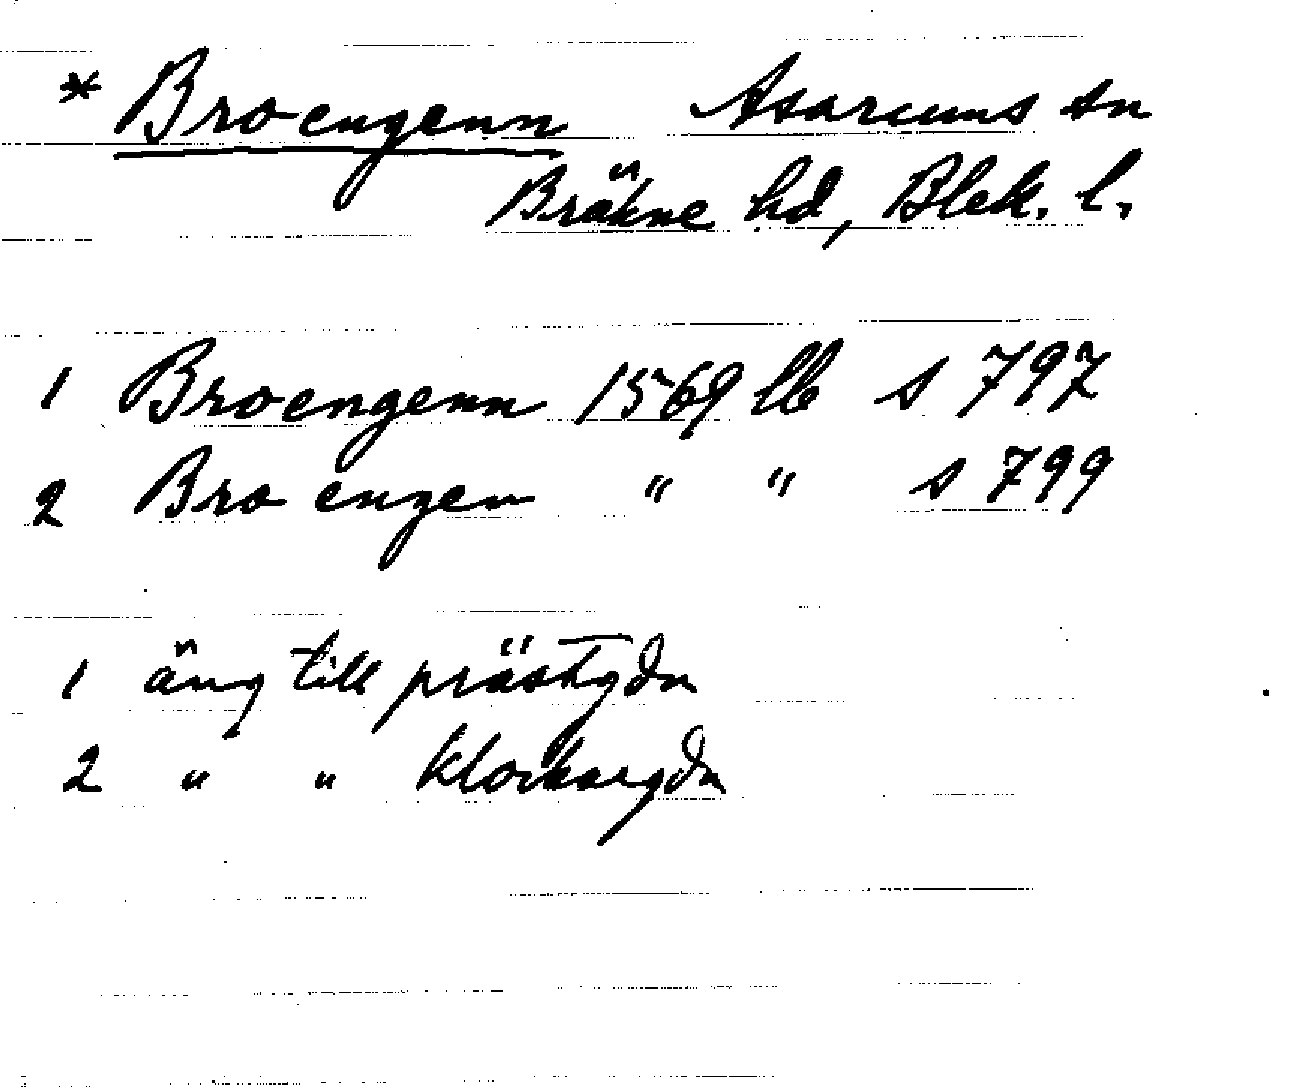 * Broengenn Asarums sn
Bräkne hd, Blek. l.
1 Broengenn 1569 lb s 797
2 Bro engen " " s 799
1 äng till prästgdn
2 " " klockargdn